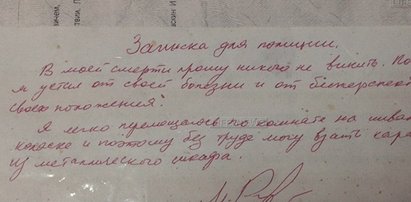 Записка для полиции.
В моей смерти прошу никого не винить. По
я устал от своей болезни и от бесперспек
своего положения.
Я легко перемещаюсь по комнате на инвал
коляске и поэтому без труда могу взять кара
из металлического шкафа.